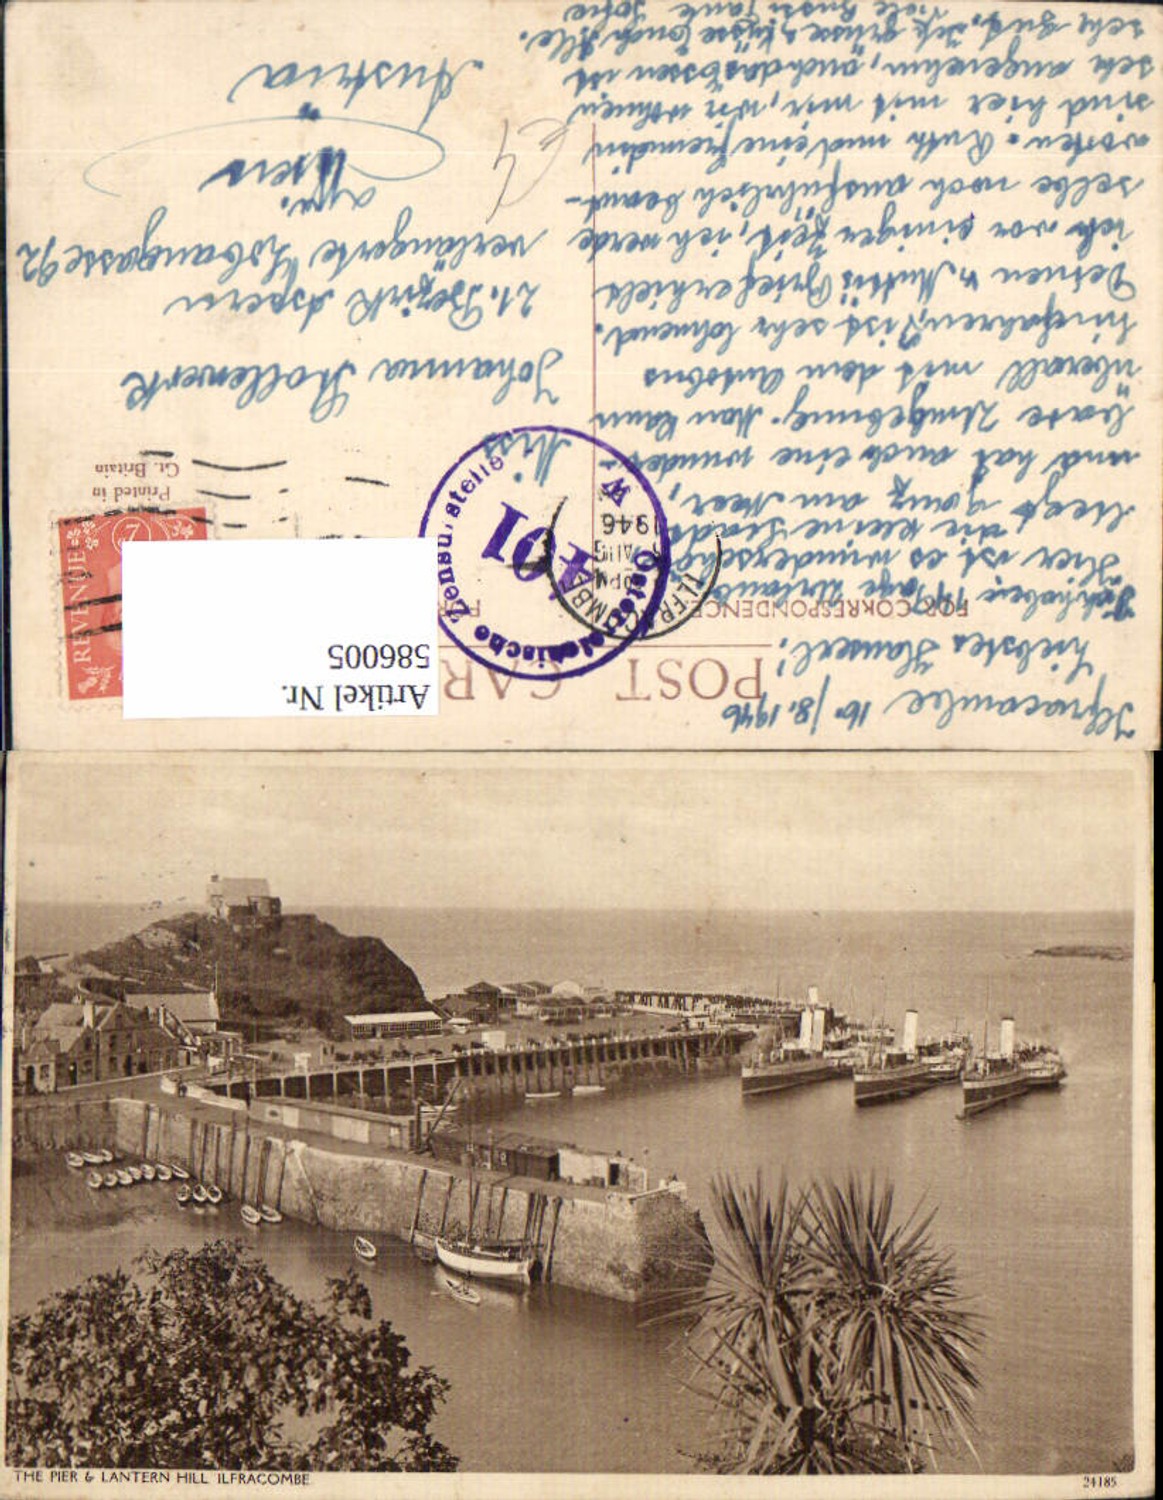 POST CAR
FOR CORRESPONDENCE
Ilfracombe 16./8. 1946
Liebstes Hannerl!
Ich habe 14 Tage Urlaub
Hier ist es wunderschö
die kleine Stadt
liegt ganz am Meer,
und hat auch eine wunder-
bare Umgebung. Man kann
überall mit dem Autobus
hinfahren, ist sehr lohnend.
Deinen u. Muttis Brief erhielt
ich vor einiger Zeit, ich werde
selbe noch ausführlich beant-
worten. Ruth und eine Freundin
sind hier mit mir, wir wohnen
sehr angenehm, auch das Essen ist
sehr gut. Ich grüsse u. küsse Euch Alle.
Tante
Printed in
Gt. Britain
REVENUE
ILFRACOMBE
AUG
1946
Österreichische Zensurstelle
W
101
Miss
Johanna Stollewerk
21. Bezirk Aspern
verlängerte Lobaugasse 92
Wien
Austria
Artikel Nr.
586005
THE PIER & LANTERN HILL ILFRACOMBE
24185